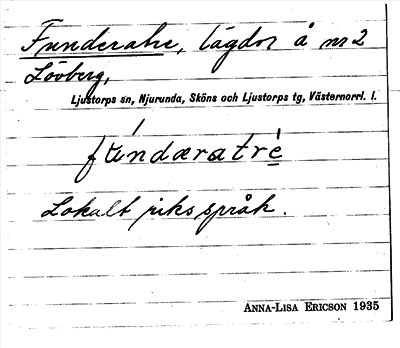 Funderatre, lägdor å nr 2
Lövberg,
Ljustorps sn, Njurunda, Sköns och Ljustorps tg, Västernorrl. l.
fúndæratrè
Lokalt riksspråk.
ANNA-LISA ERICSON 1935